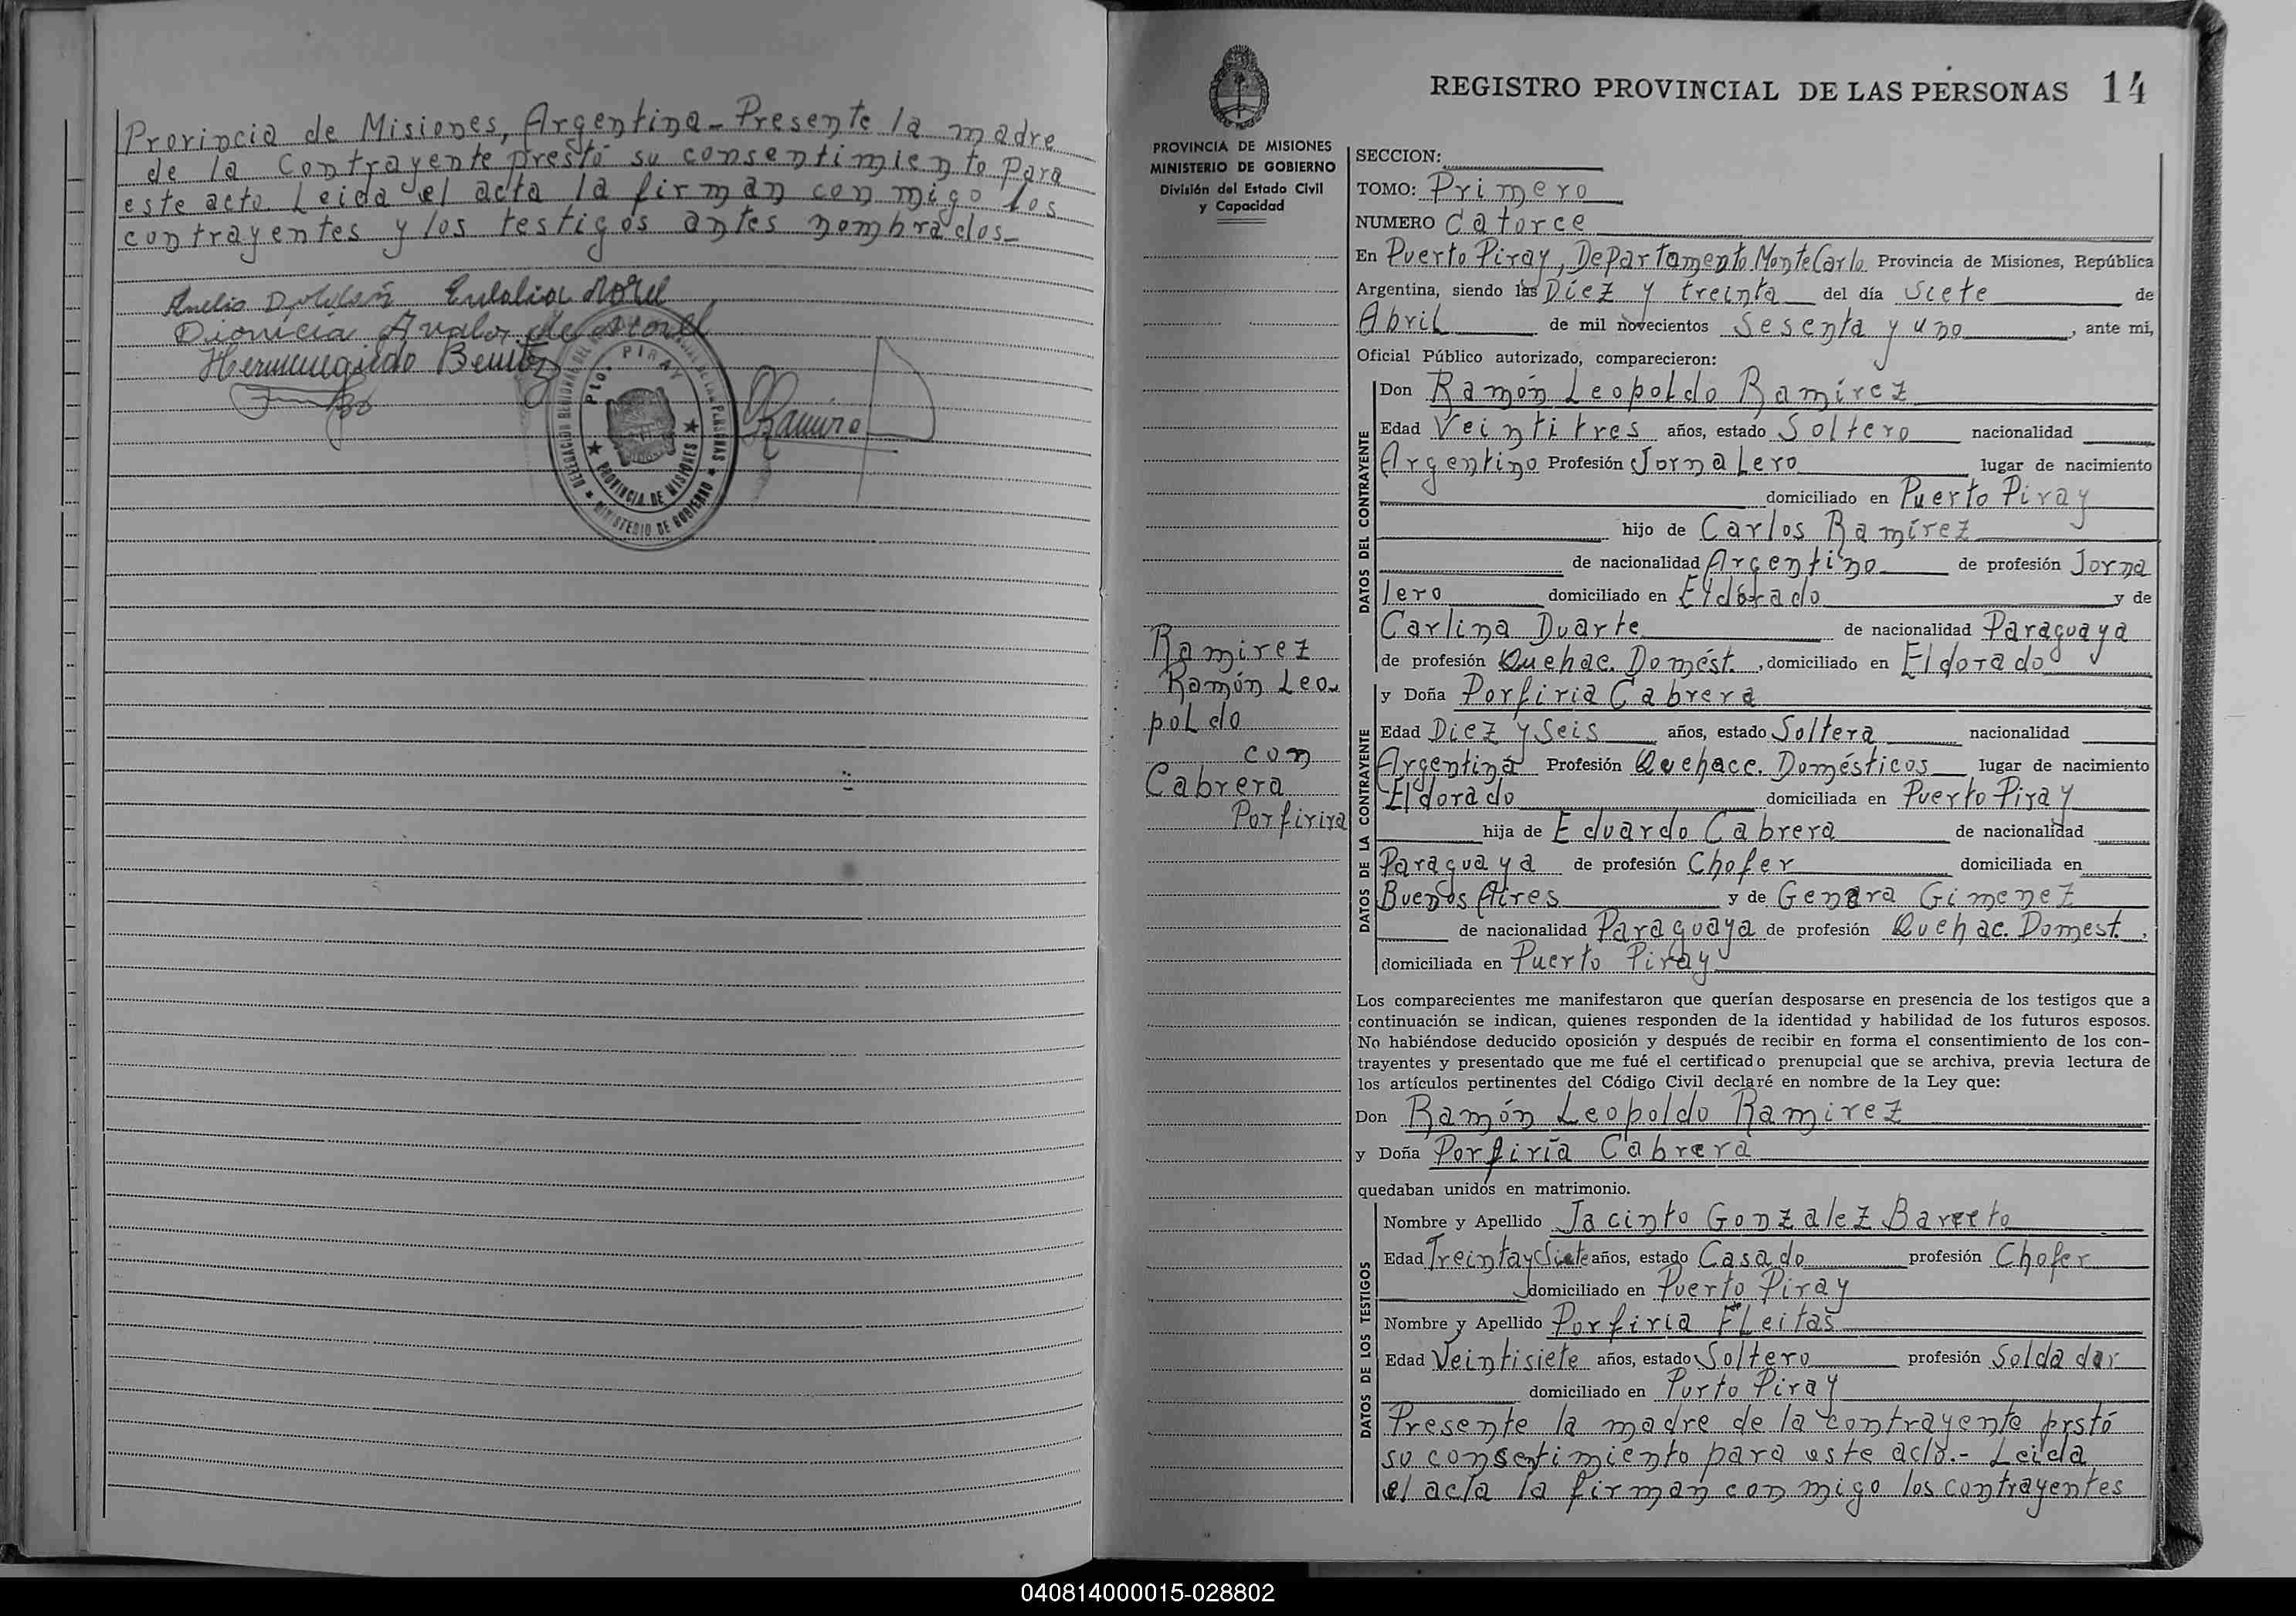 Provincia de Misiones, Argentina - Presente la madre
de la contrayente prestó su consentimiento para
este acto. Leida el acta la firman con migo los
contrayentes y los testigos antes nombrados.-
Eulalia Morel
Dionicia Avalos de Morel
Hermenegildo Benitez
DELEGACION REGIONAL DEL REGISTRO PROVINCIAL DE LAS PERSONAS
PTO. PIRAY
PROVINCIA DE MISIONES
MINISTERIO DE GOBIERNO
REGISTRO PROVINCIAL DE LAS PERSONAS 14
PROVINCIA DE MISIONES
MINISTERIO DE GOBIERNO
División del Estado Civil
y Capacidad
Ramirez
Ramón Leo
poldo
con
Cabrera
Porfirira
SECCION:
TOMO: Primero
NUMERO Catorce
En Puerto Piray, Departamento MonteCarlo Provincia de Misiones, República
Argentina, siendo las Diez y treinta del día Siete de
Abril de mil novecientos Sesenta y uno, ante mi,
Oficial Público autorizado, comparecieron:
DATOS DEL CONTRAYENTE
Don Ramón Leopoldo Ramírez
Edad Veintitres años, estado Soltero nacionalidad
Argentino Profesión Jornalero lugar de nacimiento
domiciliado en Puerto Piray
hijo de Carlos Ramírez
de nacionalidad Argentino de profesión Jorna
lero domiciliado en Eldorado y de
Carlina Duarte de nacionalidad Paraguaya
de profesión Quehac. Domést., domiciliado en Eldorado
DATOS DE LA CONTRAYENTE
y Doña Porfiria Cabrera
Edad Diez y Seis años, estado Soltera nacionalidad
Argentina Profesión Quehacc. Domésticos lugar de nacimiento
Eldorado domiciliada en Puerto Piray
hija de Eduardo Cabrera de nacionalidad
Paraguaya de profesión Chofer domiciliada en
Buenos Aires y de Genara Gimenez
de nacionalidad Paraguaya de profesión Quehac. Domest.,
domiciliada en Puerto Piray
Los comparecientes me manifestaron que querían desposarse en presencia de los testigos que a
continuación se indican, quienes responden de la identidad y habilidad de los futuros esposos.
No habiéndose deducido oposición y después de recibir en forma el consentimiento de los con-
trayentes y presentado que me fué el certificado prenupcial que se archiva, previa lectura de
los artículos pertinentes del Código Civil declaré en nombre de la Ley que:
Don Ramón Leopoldo Ramirez
y Doña Porfiria Cabrera
quedaban unidos en matrimonio.
DATOS DE LOS TESTIGOS
Nombre y Apellido Jacinto Gonzalez Barreto
Edad Treinta y Siete años, estado Casado profesión Chofer
domiciliado en Puerto Piray
Nombre y Apellido Porfiria Fleitas
Edad Veintisiete años, estado Soltero profesión Soldador
domiciliado en Purto Piray
Presente la madre de la contrayente prstó
su consentimiento para este acto.- Leida
el acta la firman con migo los contrayentes
040814000015-028802